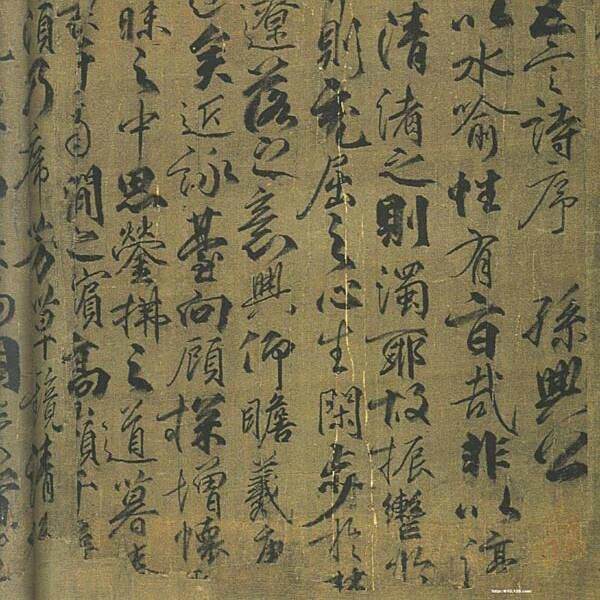 五言詩序 孫興公
以水喻性有旨哉非以渟
清淆之則濁耶故振轡於
則充屈之心生閑步於林
遼落之意興仰瞻羲唐
矣近詠臺向顧探增懷
昧之中思縈拂之道暮春
于南澗之濱高嶺千尋
須乃席芳草鏡清流